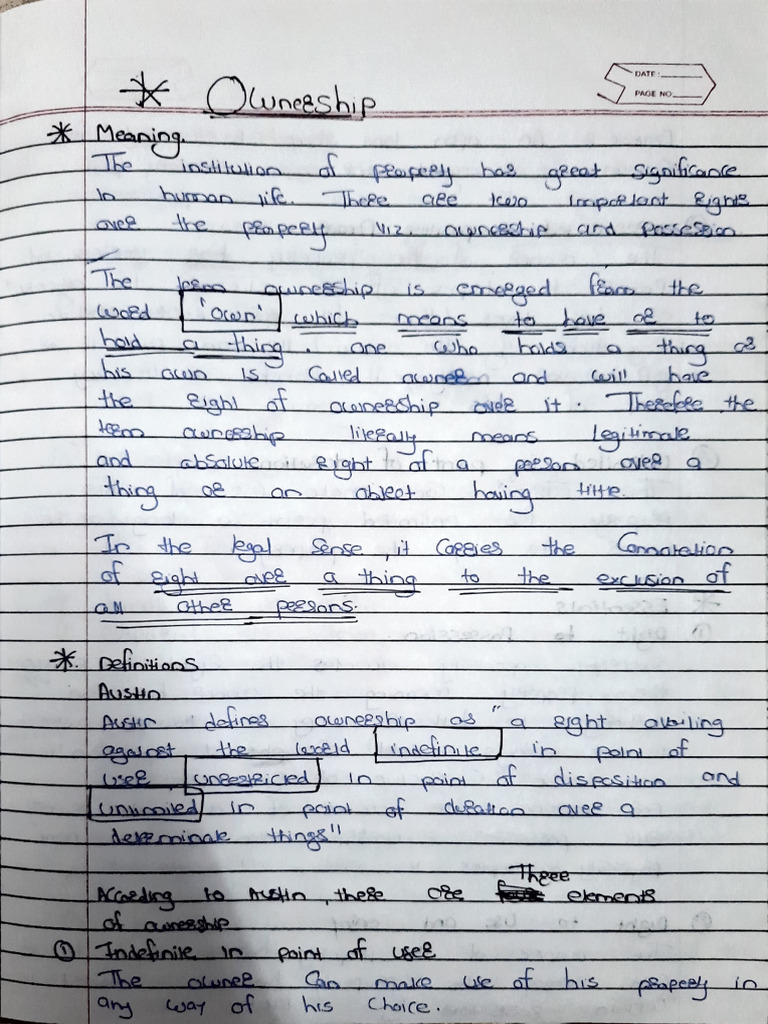 DATE:
PAGE NO.
* Ownership
* Meaning.
The institution of property has great significance
in human life. There are two important rights
over the property viz ownership and possession
The term ownership is emerged from the
word 'own' which means to have or to
hold a thing. one who holds a thing as
his own is called owner and will have
the right of ownership over it. Therefore the
term ownership literally means legitimate
and absolute right of a person over a
thing or an object having title.
In the legal sense, it carries the connotation
of right over a thing to the exclusion of
all other persons.
* Definitions
Austin
Austin defines ownership as "a right availing
against the world indefinite in point of
user unrestricted in point of disposition and
unlimited in point of duration over a
determinate things"
According to Austin, there are Three elements
of ownership
① Indefinite in point of user
The owner can make use of his property in
any way of his choice.